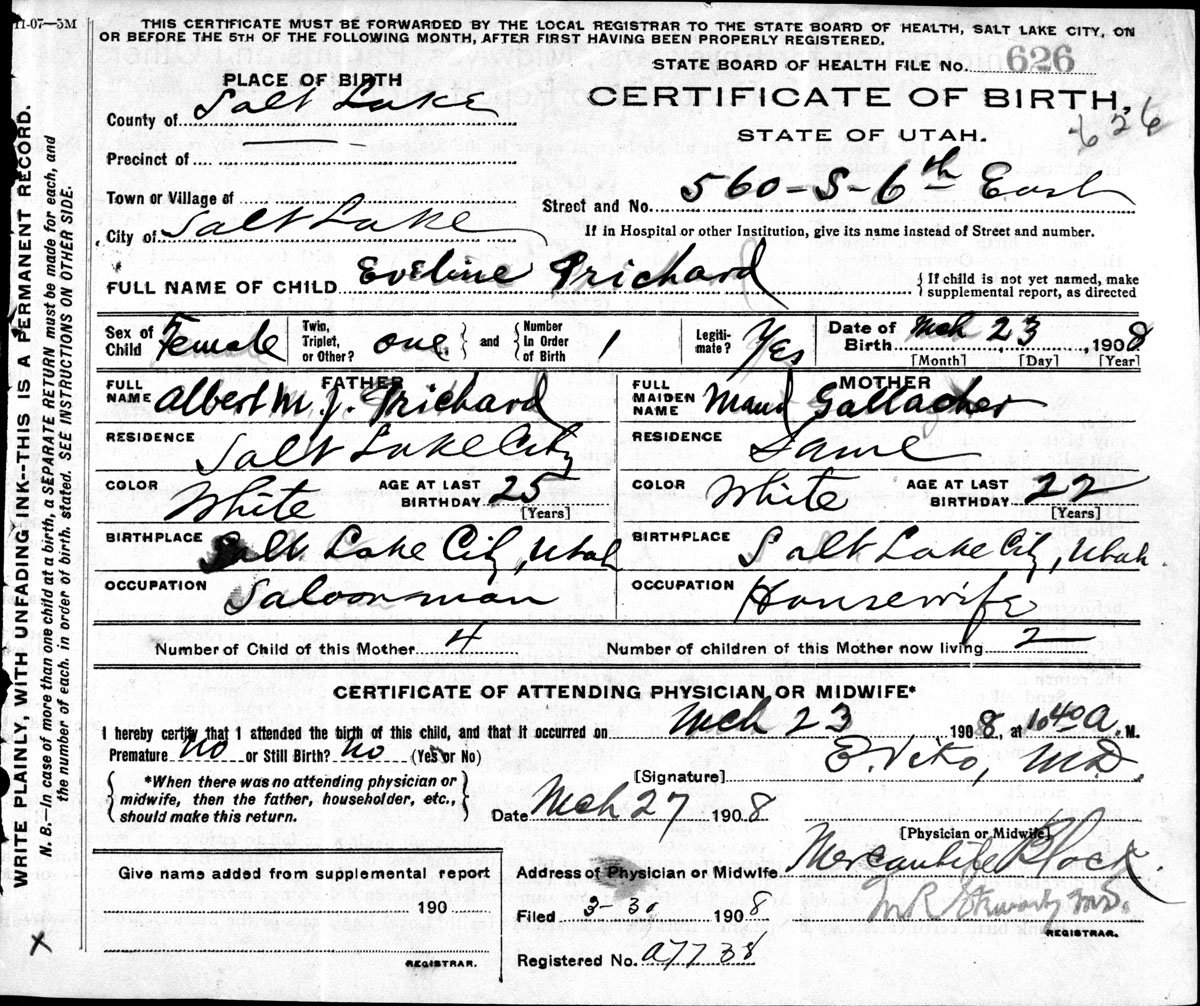 11-07—5M
THIS CERTIFICATE MUST BE FORWARDED BY THE LOCAL REGISTRAR TO THE STATE BOARD OF HEALTH, SALT LAKE CITY, ON
OR BEFORE THE 5TH OF THE FOLLOWING MONTH, AFTER FIRST HAVING BEEN PROPERLY REGISTERED.
STATE BOARD OF HEALTH FILE No. 626
PLACE OF BIRTH
CERTIFICATE OF BIRTH,
626
STATE OF UTAH.
County of Salt Lake
Precinct of —
Town or Village of
Street and No. 560-S-6th East
City of Salt Lake
If in Hospital or other Institution, give its name instead of Street and number.
FULL NAME OF CHILD Eveline Prichard
{If child is not yet named, make
supplemental report, as directed
Sex of Child Female
Twin, Triplet, or Other? one } and { Number In Order of Birth 1
Legiti-mate? Yes
Date of Birth Mch 23, 1908
[Month] [Day] [Year]
FATHER
FULL NAME Albert M. J. Prichard
RESIDENCE Salt Lake City
COLOR White AGE AT LAST BIRTHDAY 25 [Years]
BIRTHPLACE Salt Lake City, Utah
OCCUPATION Saloonman
MOTHER
FULL MAIDEN NAME Maud Gallagher
RESIDENCE Same
COLOR White AGE AT LAST BIRTHDAY 22 [Years]
BIRTHPLACE Salt Lake City, Utah
OCCUPATION Housewife
Number of Child of this Mother 4 Number of children of this Mother now living 2
CERTIFICATE OF ATTENDING PHYSICIAN OR MIDWIFE*
I hereby certify that I attended the birth of this child, and that it occurred on Mch 23 1908, at 10 40 A. M.
Premature No or Still Birth? No (Yes or No)
{*When there was no attending physician or
midwife, then the father, householder, etc.,
should make this return.}
[Signature] M.D.
Date Mch 27 1908
[Physician or Midwife]
Address of Physician or Midwife Mercantile Block.
Give name added from supplemental report
190
REGISTRAR.
Filed 1908
M.D.
REGISTRAR.
Registered No. a7738
X
WRITE PLAINLY, WITH UNFADING INK--THIS IS A PERMANENT RECORD.
N. B.—In case of more than one child at a birth, a SEPARATE RETURN must be made for each, and
the number of each. in order of birth. stated. SEE INSTRUCTIONS ON OTHER SIDE.